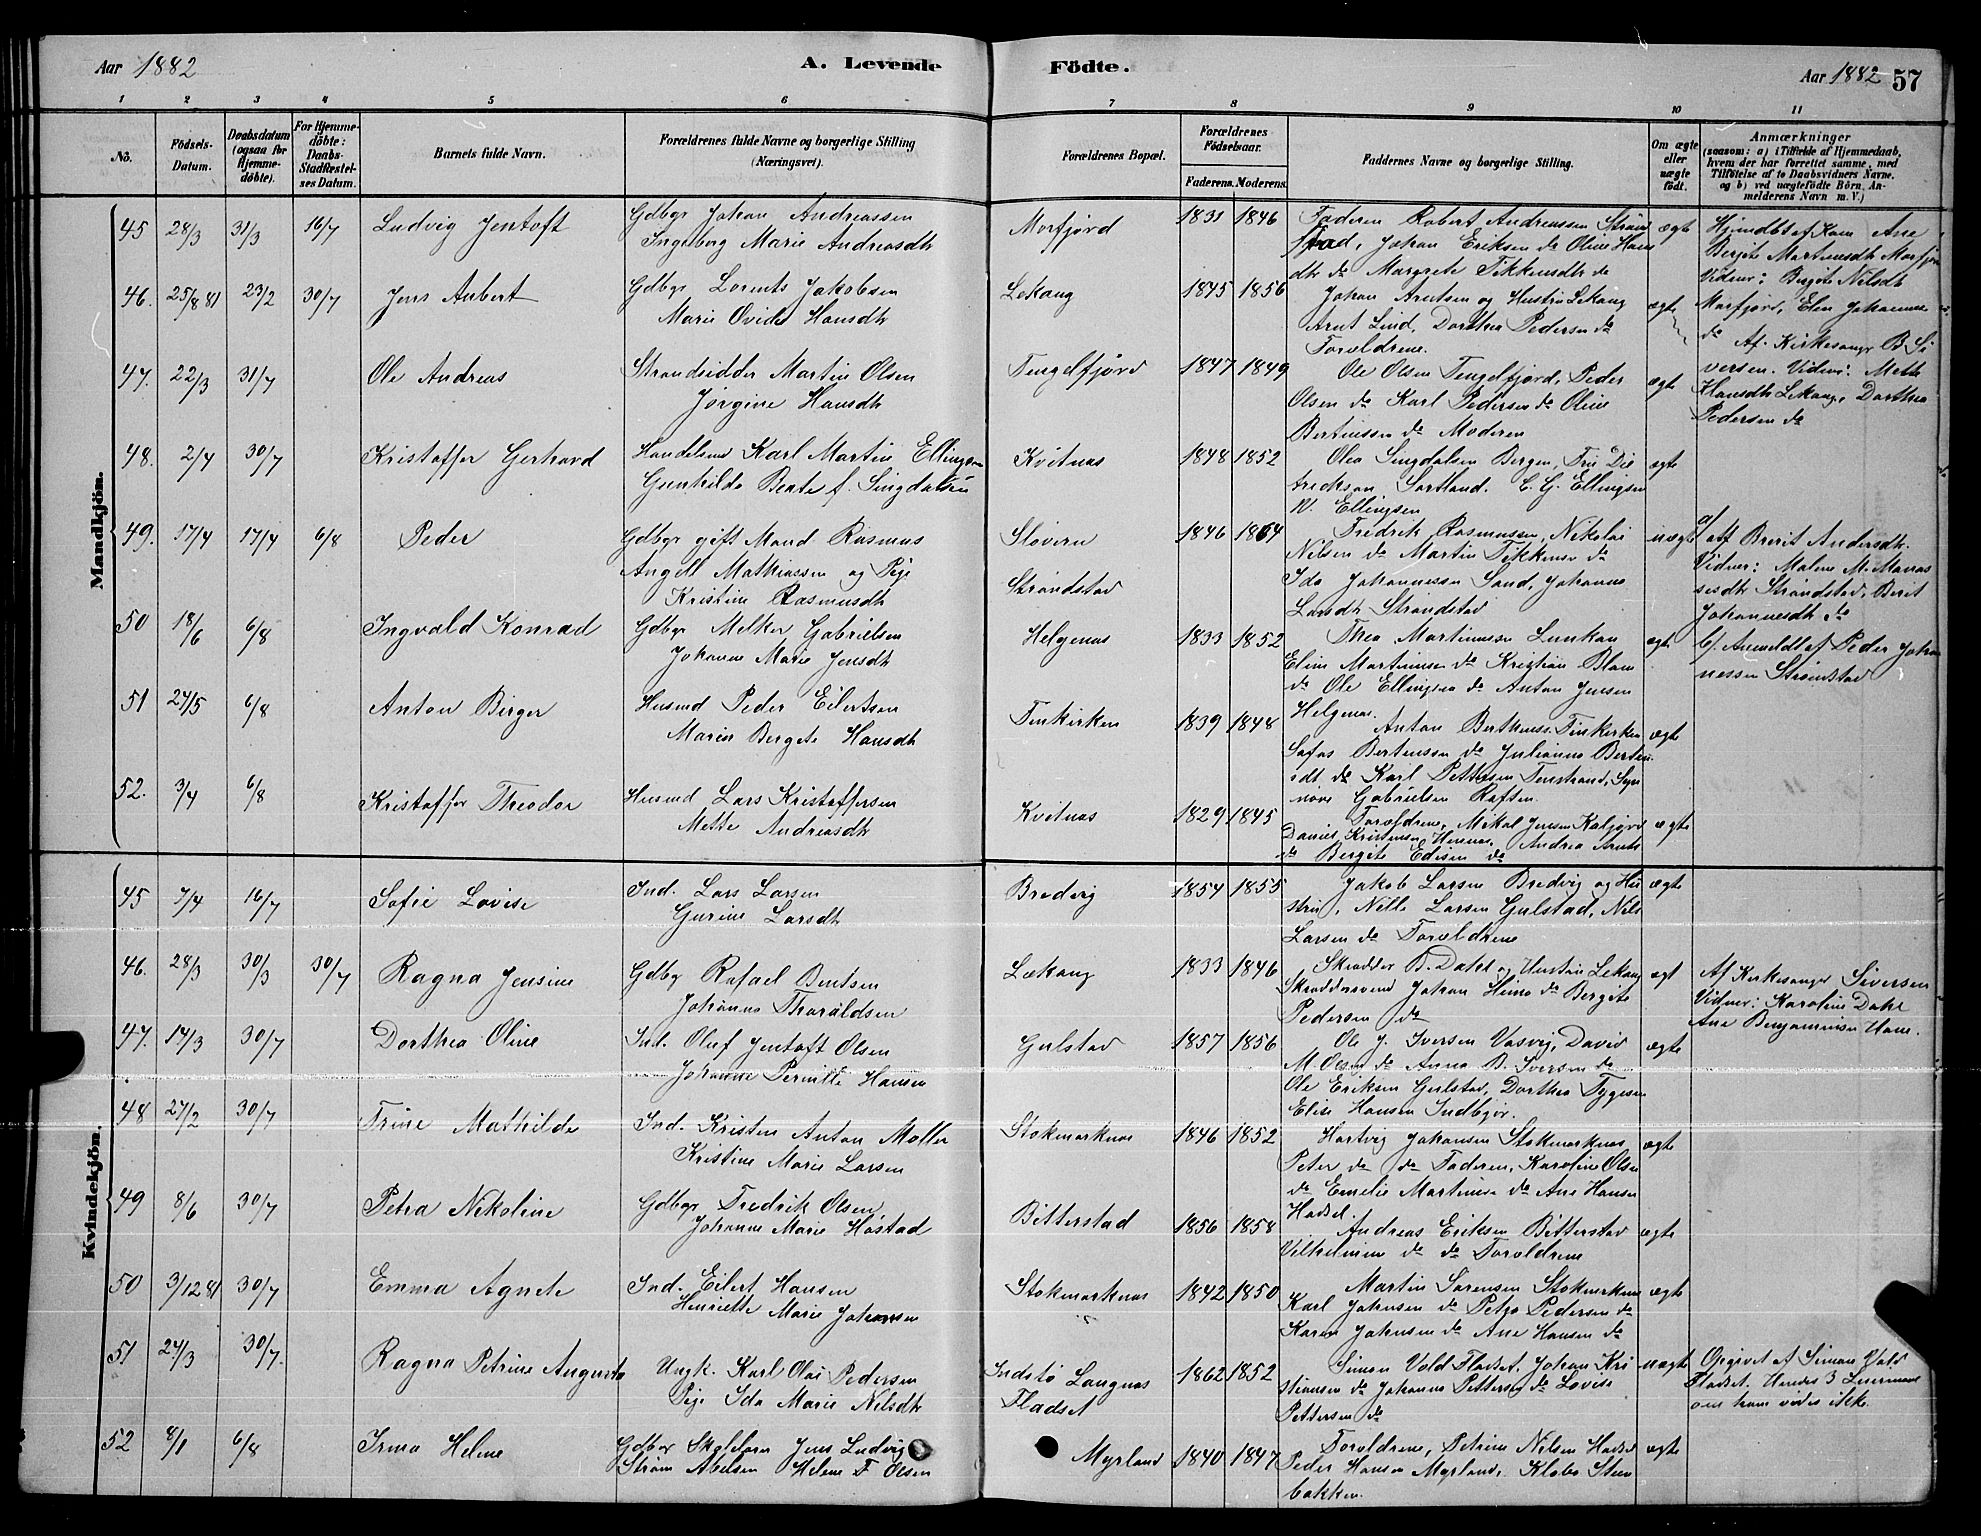 Aar 1882
A. Levende Födte.
Aar 1882 57
1 2 3 4 5 6 7 8 9 10 11
No.
Födsels-Datum.
Daabsdatum (ogsaa for Hjemme-döbte).
For Hjemme-döbte: Daabs-Stadfæstel-ses Datum.
Barnets fulde Navn.
Forældrenes fulde Navne og borgerlige Stilling (Næringsvei).
Forældrenes Bopæl.
Forældrenes Födselsaar.
Faderens. Moderens.
Faddernes Navne og borgerlige Stilling.
Om ægte eller uægte födt.
Anmærkninger
(saasom: a) i Tilfælde af Hjemmedaab, hvem der har forrettet samme, med Tilföielse af to Daabsvidners Navne. og b) ved uægtefödte Börn, An-melderens Navn m. V.)
Mandkjön.
45 28/3 31/3 16/7 Ludvig Jentoft
Gdbgr Johan Andreassen
Ingeborg Marie Andreasdtr
Morfjord 1831 1846
Faderen Robert Andreassen Strand
stad, Johan Eriksen do Oline Hans
dtr do Margrete Tekkensdtr do
ægte
Hjemdbt af Kone Ane
Bergite Martinusdtr Morfjord
Vidner: Bergite Nilsdtr
Morfjord, Elen Johannes
do
46. 25/8 81 23/2 30/7 Jens Anbert
Gdbgr Lorents Jakobsen
Marie Ovidia Hansdtr
Lekang 1845 1856
Johan Arntsen og Hustru Lekang
Arnt Lind, Dorthea Pedersen do
Forældrene.
ægte
Af Kirkesanger B Si
versen. Vidner: Mette
Hansdtr Lekang, Dorthea
Pedersen do
47. 22/3 31/7 Ole Andreas
Strandsidder Martin Olsen
Jørgine Hansdtr
Tengelfjord 1847 1849
Ole Olsen Tengelfjord, Peder
Olsen do Karl Pedersen do Oline
Bertinussen do Moderen
ægte
48. 2/4 30/7 Kristoffer Gerhard
Handelsmd Karl Martin Ellingsen
Gunhilda Beate f. Singdalsen
Kvitnæs 1848 1852
Olea Singdalsen Bergen, Fru Die
drickson Sortland. C. G. Ellingsen
N. Ellingsen
ægte
49. 17/4 17/4 6/8 Peder
Gdbgr gift Mand Rasmus
Angell Mathiassen og Pige
Kristine Rasmusdtr
Sloveren
Strandstad
1846 1864
Fredrik Rasmussen, Nikolai
Nilsen do Martin Tekkensen do
Ida Johannessen Sand, Johanna
Larsdtr Strandstad
uægte
a/ Af Brerit Andersdtr.
Vidner: Malene M. Manas
sesdtr Strandstad, Berit
Johannesdtr do
b/. Anmeldt af Peder Johan
nessen Strandstad
50 18/6 6/8 Ingvald Konrad
Gdbgr Melker Gabrielsen
Johanna Marie Jensdtr
Helgenæs 1833 1852
Thea Martinussen Lunkan
Eline Martinusen do Kristian Blom
do Ole Ellingsen do Anton Jensen
Helgenæs.
ægte
51 27/5 6/8 Anton Birger
Husmd Peder Eilertsen
Maren Bergete Hansdtr
Finkirken 1839 1848
Anton Berthenss. Finkirken
Sofus Bertensen do Julianna Berten
sdt do Karl Pettersen Finstrand, Syn
nøve Gabrielsen Raften
ægte
52. 3/4 6/8 Kristoffer Theodor
Husmd Lars Kristoffersen
Mette Andreasdtr
Kvitnæs 1829 1845
Forældrene, Mikal Jensen Kaljord
Daniel Kristensen Hennæs, Andrea Arnts
do Bergite Edisen do
ægte
Kvindekjön.
45 7/4 16/7 Sofie Lovise
Ind. Lars Larsen
Gurine Larsdtr
Bredvig 1854 1855
Jakob Larsen Bredvig og Hu
stru, Nille Larsen Gulstad, Nils
Larsen do Forældrene
ægte
46. 28/3 30/3 30/7 Ragna Jensine
Gdbgr Rafael Bentsen
Johanna Tharaldsen
Lekang 1833 1846
Skrædder B. Dahl og Hustru Lekang
Skræddersvend Johan Heims do Bergite
Pedersen do
ægt
Af Kirkesanger Siversen
Vidner: Karoline Dahl
Ane Benjaminsen Ham.
47. 14/3 30/7 Dorthea Oline
Ind. Oluf Jentoft Olsen
Johanne Pernille Hansen
Gulstad 1857 1856
Ole J. Iversen Vasvig, David
M. Olsen do Anna B. Iversen do
Ole Eriksen Gulstad, Dorthea Tygesen
Elise Hansen Indbgjor.
ægte
48 27/2 30/7 Trine Mathilde
Ind. Kristen Anton Møller
Kristine Marie Larsen
Stokmarknæs 1846 1852
Hartvig Johansen Stokmarknæs
Peter do do Faderen, Karoline Olsen
do Emelie Martinsen do Ane Hansen
Hadsel.
ægte
49 8/6 30/7 Petra Nikoline
Gdbgr Fredrik Olsen
Johanne Marie Høstad
Bitterstad 1856 1858
Andreas Eriksen Bitterstad
Vilhelmine do do Forældrene
ægte
50 3/12 81 30/7 Emma Agnete
Ind. Eilert Hansen
Henriette Marie Johansen
Stokmarknæs 1842 1850
Martin Sørensen Stokmarknæs
Karl Johansen do Petra Pedersen do
Karen Johnsen do Ane Hansen do
ægte
51 24/3 30/7. Ragna Petrine Augusta
Ungk. Karl Olai Pedersen
Pige Ida Marie Nilsdtr
Indstø Langnæs
Fladset
1862 1852
Simon Vold Fladset, Johan Kri
stiansen do Johanna Pettersen do Lovise
Pettersen do
uægte
Opgivet af Simon Vold
Fladset. Hendes 3 Leiermaal
om ham vides ikke.
52 8/1 6/8 Irma Helene
Gdbgr Skolelærer Jens Ludvig
Strøm Abelsen Helene F Olsen
Myrland 1840 1847
Forældrene, Petrine Nilsen Hadsel
Peder Hansen Myrland, Kløbo Steen
bakken.
ægte